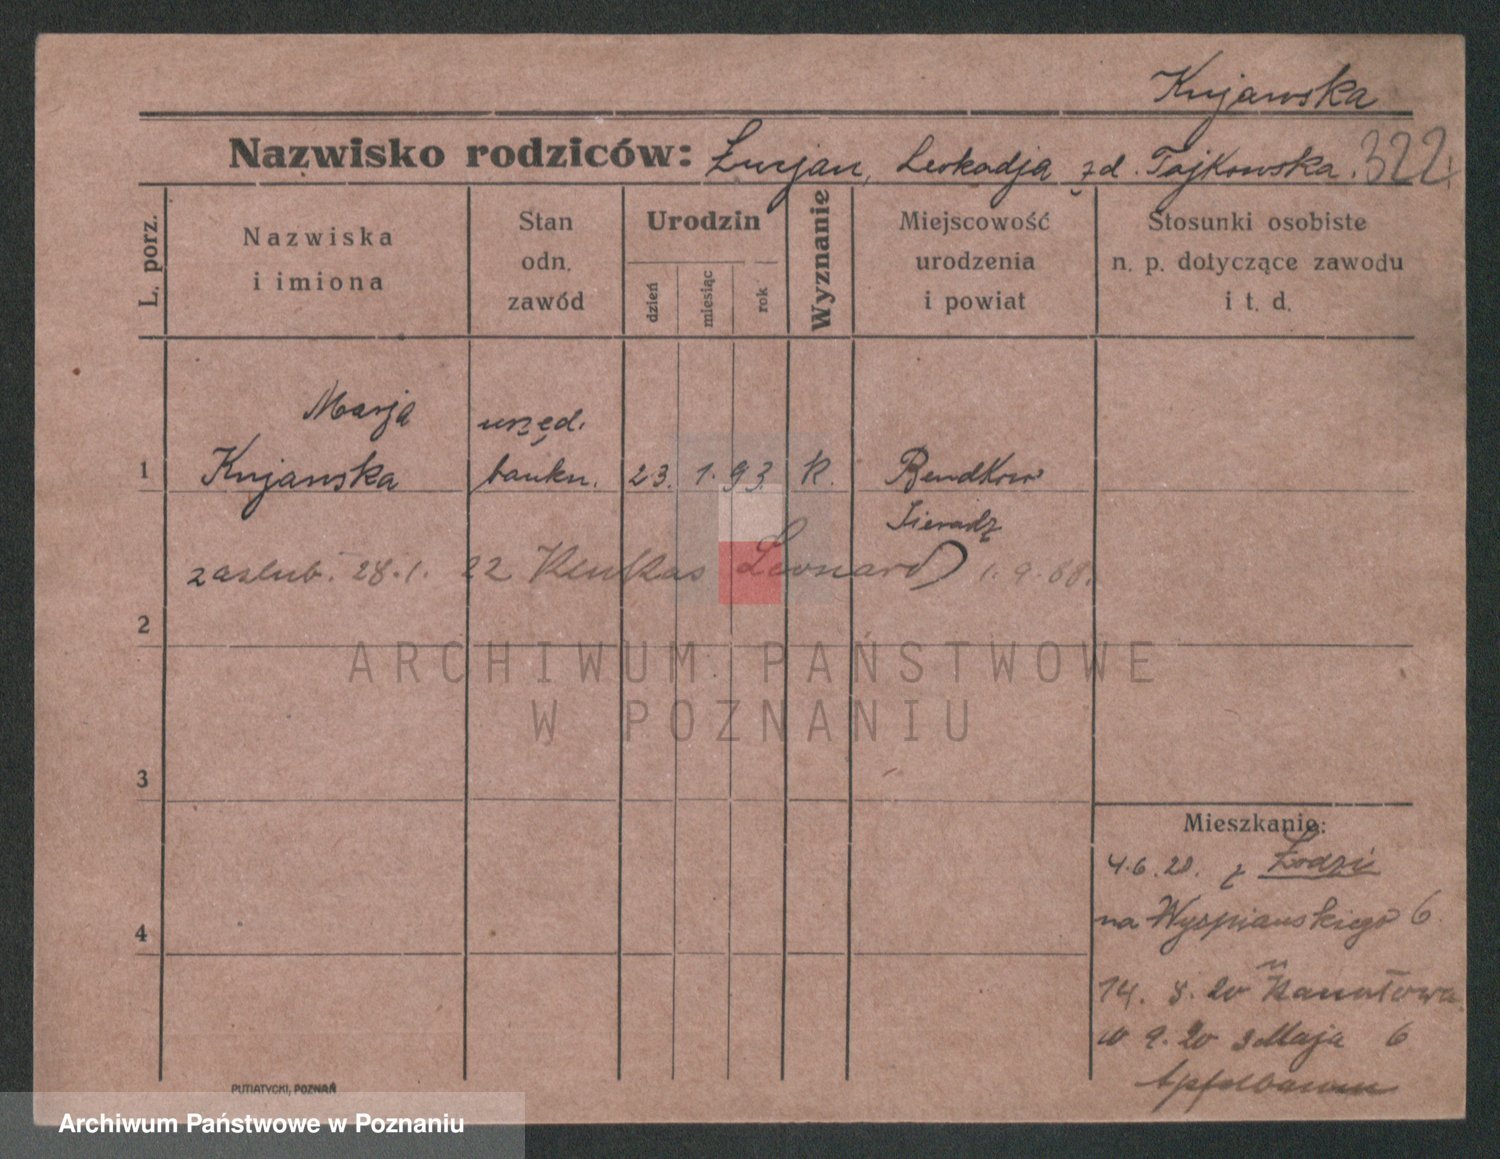 Kujawska
Nazwisko rodziców: Lucjan, Leokadja z d. Tajkowska. 322
L. porz.
Nazwiska
i imiona
Stan
odn.
zawód
Urodzin
dzień
miesiąc
rok
Wyznanie
Miejscowość
urodzenia
i powiat
Stosunki osobiste
n. p. dotyczące zawodu
i t. d.
Marja urzęd.
1 Kujawska bankn. 23. 1. 93. K. Bendkow
Sieradz
zaślub. 28.1. 22 Leonard
2
ARCHIWUM PAŃSTWOWE
W POZNANIU
3
Mieszkanie:
4.6.20. z Łodzi
na Wyspiańskiego 6.
4
14. 8. 20 Kanałowa
10 9. 20 3 Maja 6
Apfelbaum
PUTIATYCKI, POZNAŃ
Archiwum Państwowe w Poznaniu